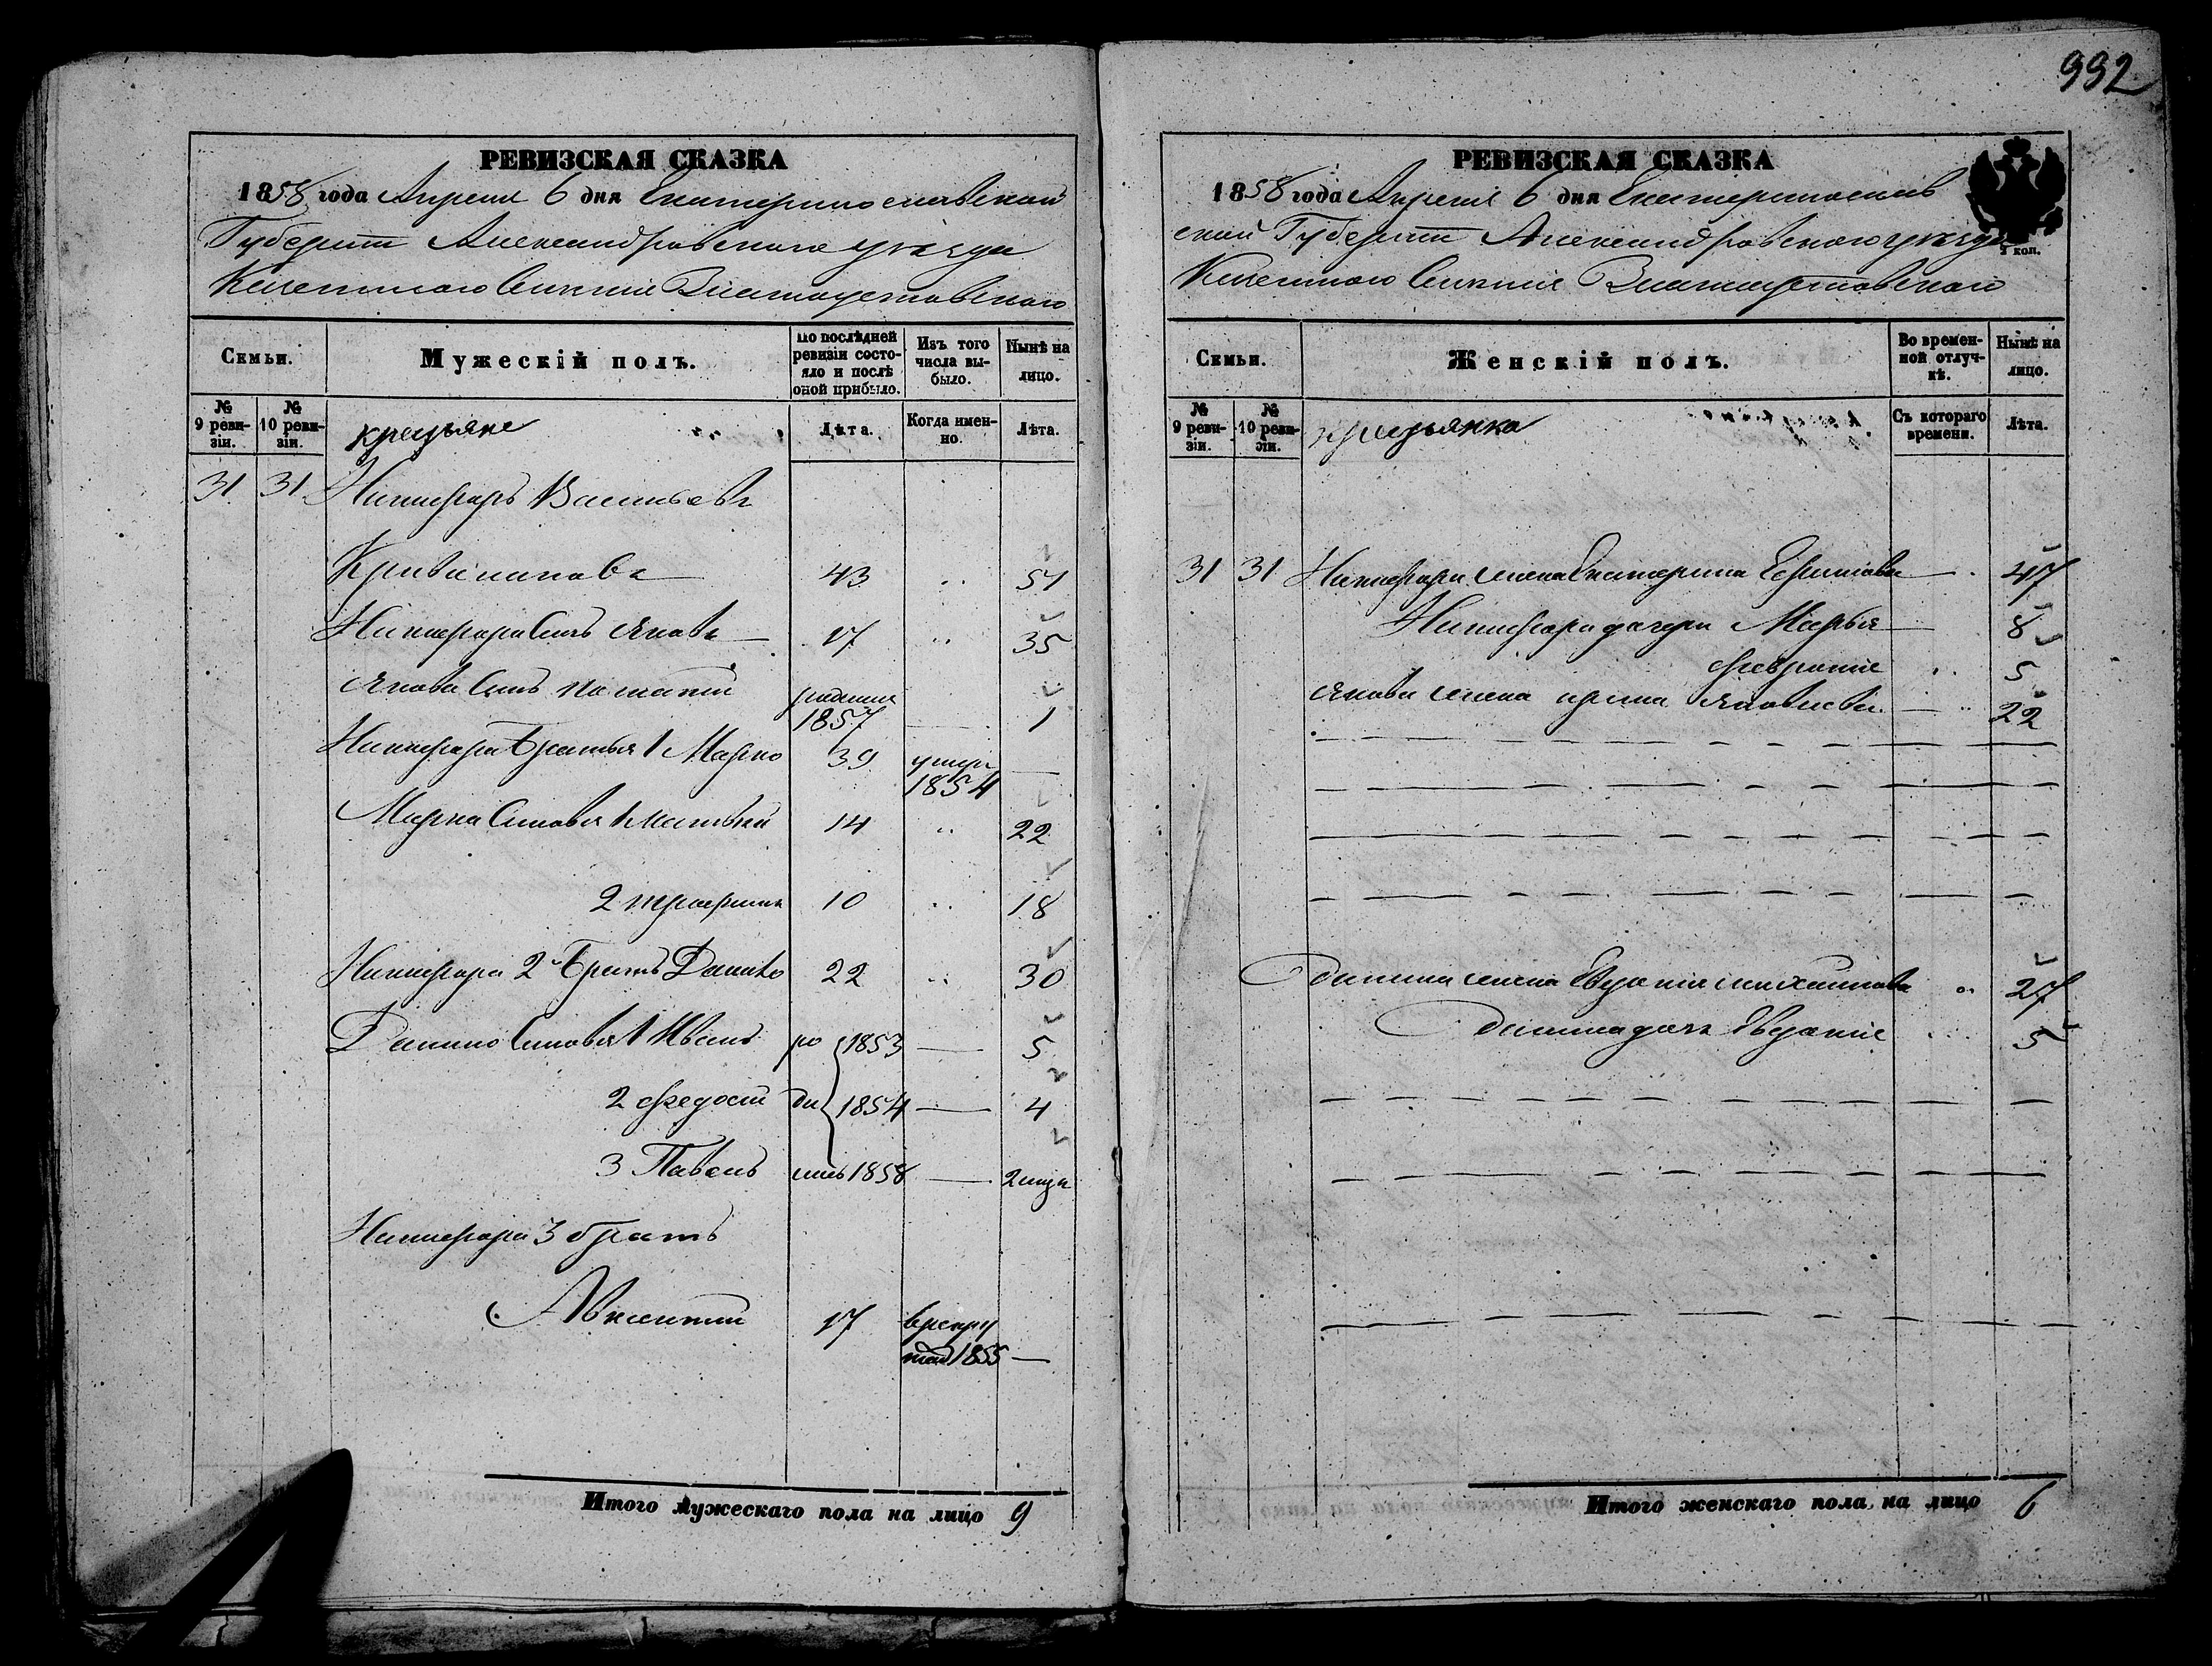 992
РЕВИЗСКАЯ СКАЗКА
1858 года Апреля 6 дня Екатеринославской
Губернии Александровского уезда
Казенного Селения
Семьи.
Мужескій полъ.
По послѣдней ревизіи состояло и послѣ оной прибыло.
Изъ того числа выбыло.
Нынѣ на лицо.
№ 9 ревизіи.
№ 10 ревизіи.
крестьяне
Лѣта.
Когда именно.
Лѣта.
31 31 Никифоръ Васильевъ
43 51
Никифора Сынъ Яковъ 17 35
Якова Сынъ родился 1857 1
Никифора Братья 1 Марко 39 умеръ 1854 —
Марка Сыновья 1 14 22
2 Трофимъ 10 18
Никифора 2й Братъ Данило 22 30
Данило Сыновья 1 Иванъ ро 1853 — 5
2 Федосій ди 1854 — 4
3 Павелъ лись 1858 — 2 меся
Никифора 3 братъ
Авксентій 17 в рекру
1855 —
Итого мужескаго пола на лицо 9
РЕВИЗСКАЯ СКАЗКА
1858 года Апреля 6 дня Екатеринослав
ской Губернии Александровского уезда
Казенного Селения
Семьи.
Женскій полъ.
Во временной отлучкѣ.
Нынѣ на лицо.
№ 9 ревизіи.
№ 10 ревизіи.
крестьянка
Съ котораго времени.
Лѣта.
31 31 Никифора жена Екатерина Ефимова — 47
Никифора дочери Марья — 8
Февронія 5
Якова жена Ирина Яковлева — 22
Данила жена Евдокія Михайлова 27
Данила дочь Евдокія 5
Итого женскаго пола на лицо 6